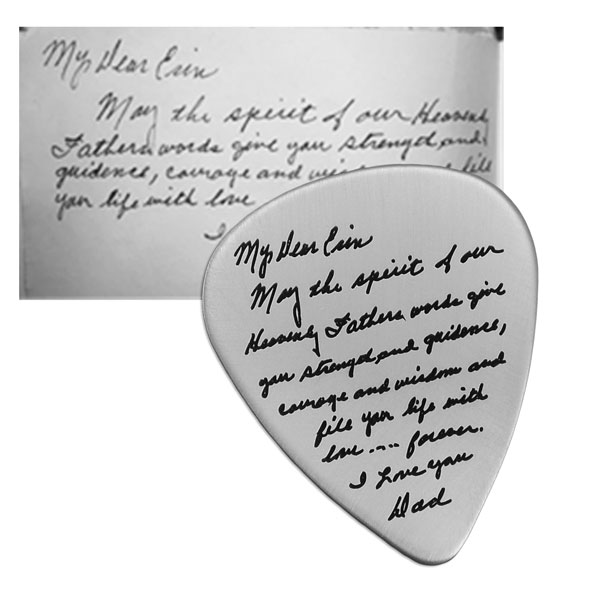 My Dear Erin
May the spirit of our Heavenly
Fathers words give you strength, and
guidence, courage and fill
your life with love
I
My Dear Erin
May the spirit of our
Heavenly Fathers words give
you strength, and guidence,
courage and wisdom and
fill your life with
love.... forever.
I Love you
Dad